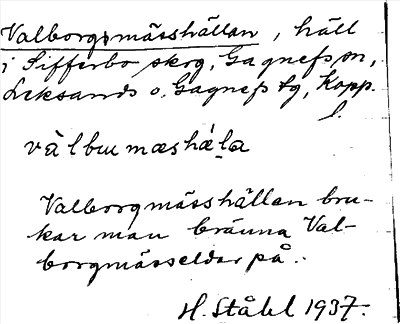 Valborgsmässhällan, häll
i Sifferbo skog, Gagnefs sn,
Leksands o. Gagnefs tg, Kopp.
l.
vàlbumæshǽla
Valborgmässhällan bru-
kar man bränna Val-
borgmässeldar på.
H. Ståhl 1937.